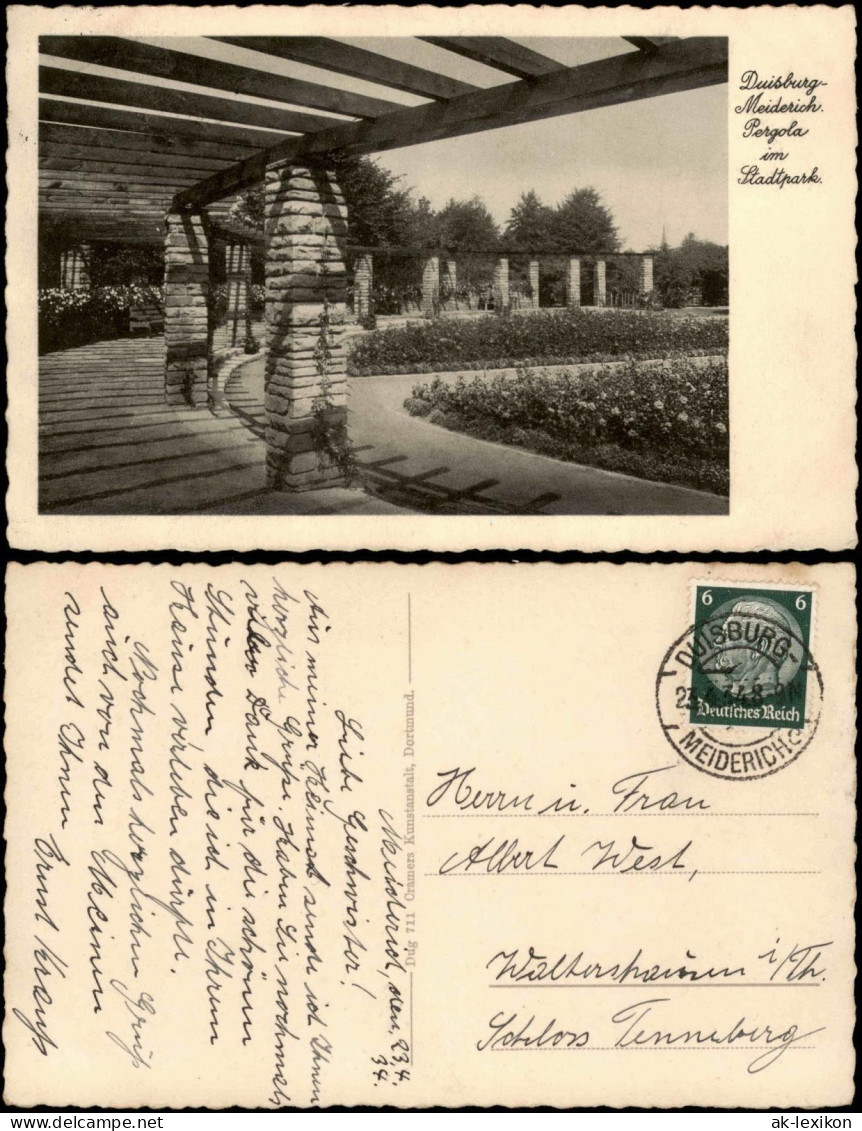 Duisburg-
Meiderich.
Pergola
im
Stadtpark.
6 6
Deutsches Reich
DUISBURG-
MEIDERICH
Meiderich, den, 23.4.
34.
Liebe Geschwister!
Aus meiner Heimat sende ich Ihnen
herzliche Grüße. Haben Sie nochmals
vielen Dank für die schönen
Stunden die ich in Ihrem
Hause verleben durfte.
Nochmals herzlichen Gruß
auch von den Meinen
sendet Ihnen
Ernst Krauß
Dug 711 Cramers Kunstanstalt, Dortmund.
Herrn u. Frau
Albert West,
Waltershausen i/Th.
Schloss Tenneberg
ak-lexikon
ak-lexikon.com